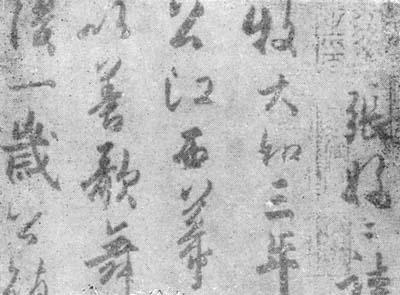 張好〻詩
牧大和三年
公江西幕
以善歌舞
後一歲公鎮